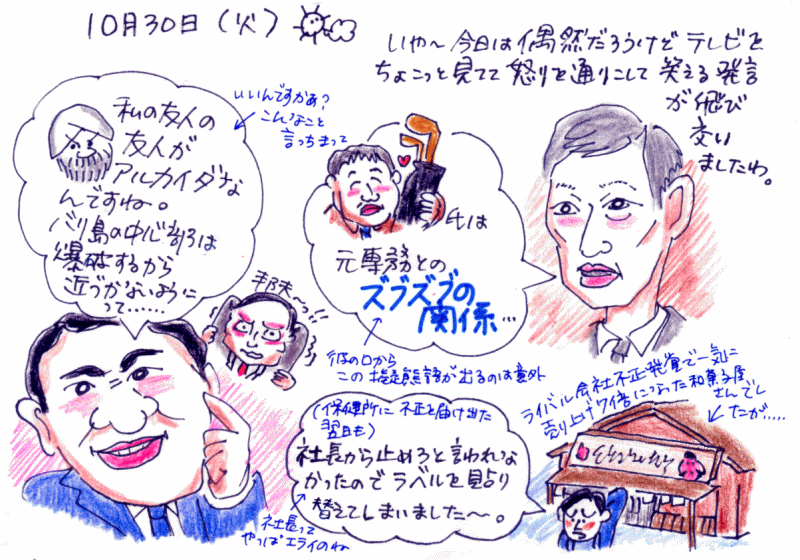 10月30日(火)
いや〜今日は偶然だろうけどテレビを
ちょこっと見てて怒りを通りこして笑える発言
が飛び
交い
ましたわ。
私の友人の
友人が
アルカイダな
んですね。
バリ島の中心部は
爆破するから
近づかないように
って……
いいんですかぁ?
こんなこと
言っちまって
邦夫〜っ!!
氏は
元専務との
ズブズブの
関係…
彼の口から
この擬態語が出るのは意外
(保健所に不正を届け出た
翌日も)
社長から止めろと言われな
かったのでラベルを貼り
替えてしまいました〜。
社長って
やっぱエライのね
ライバル会社不正発覚で一気に
売り上げ7倍になった和菓子屋
さんでし
たが……